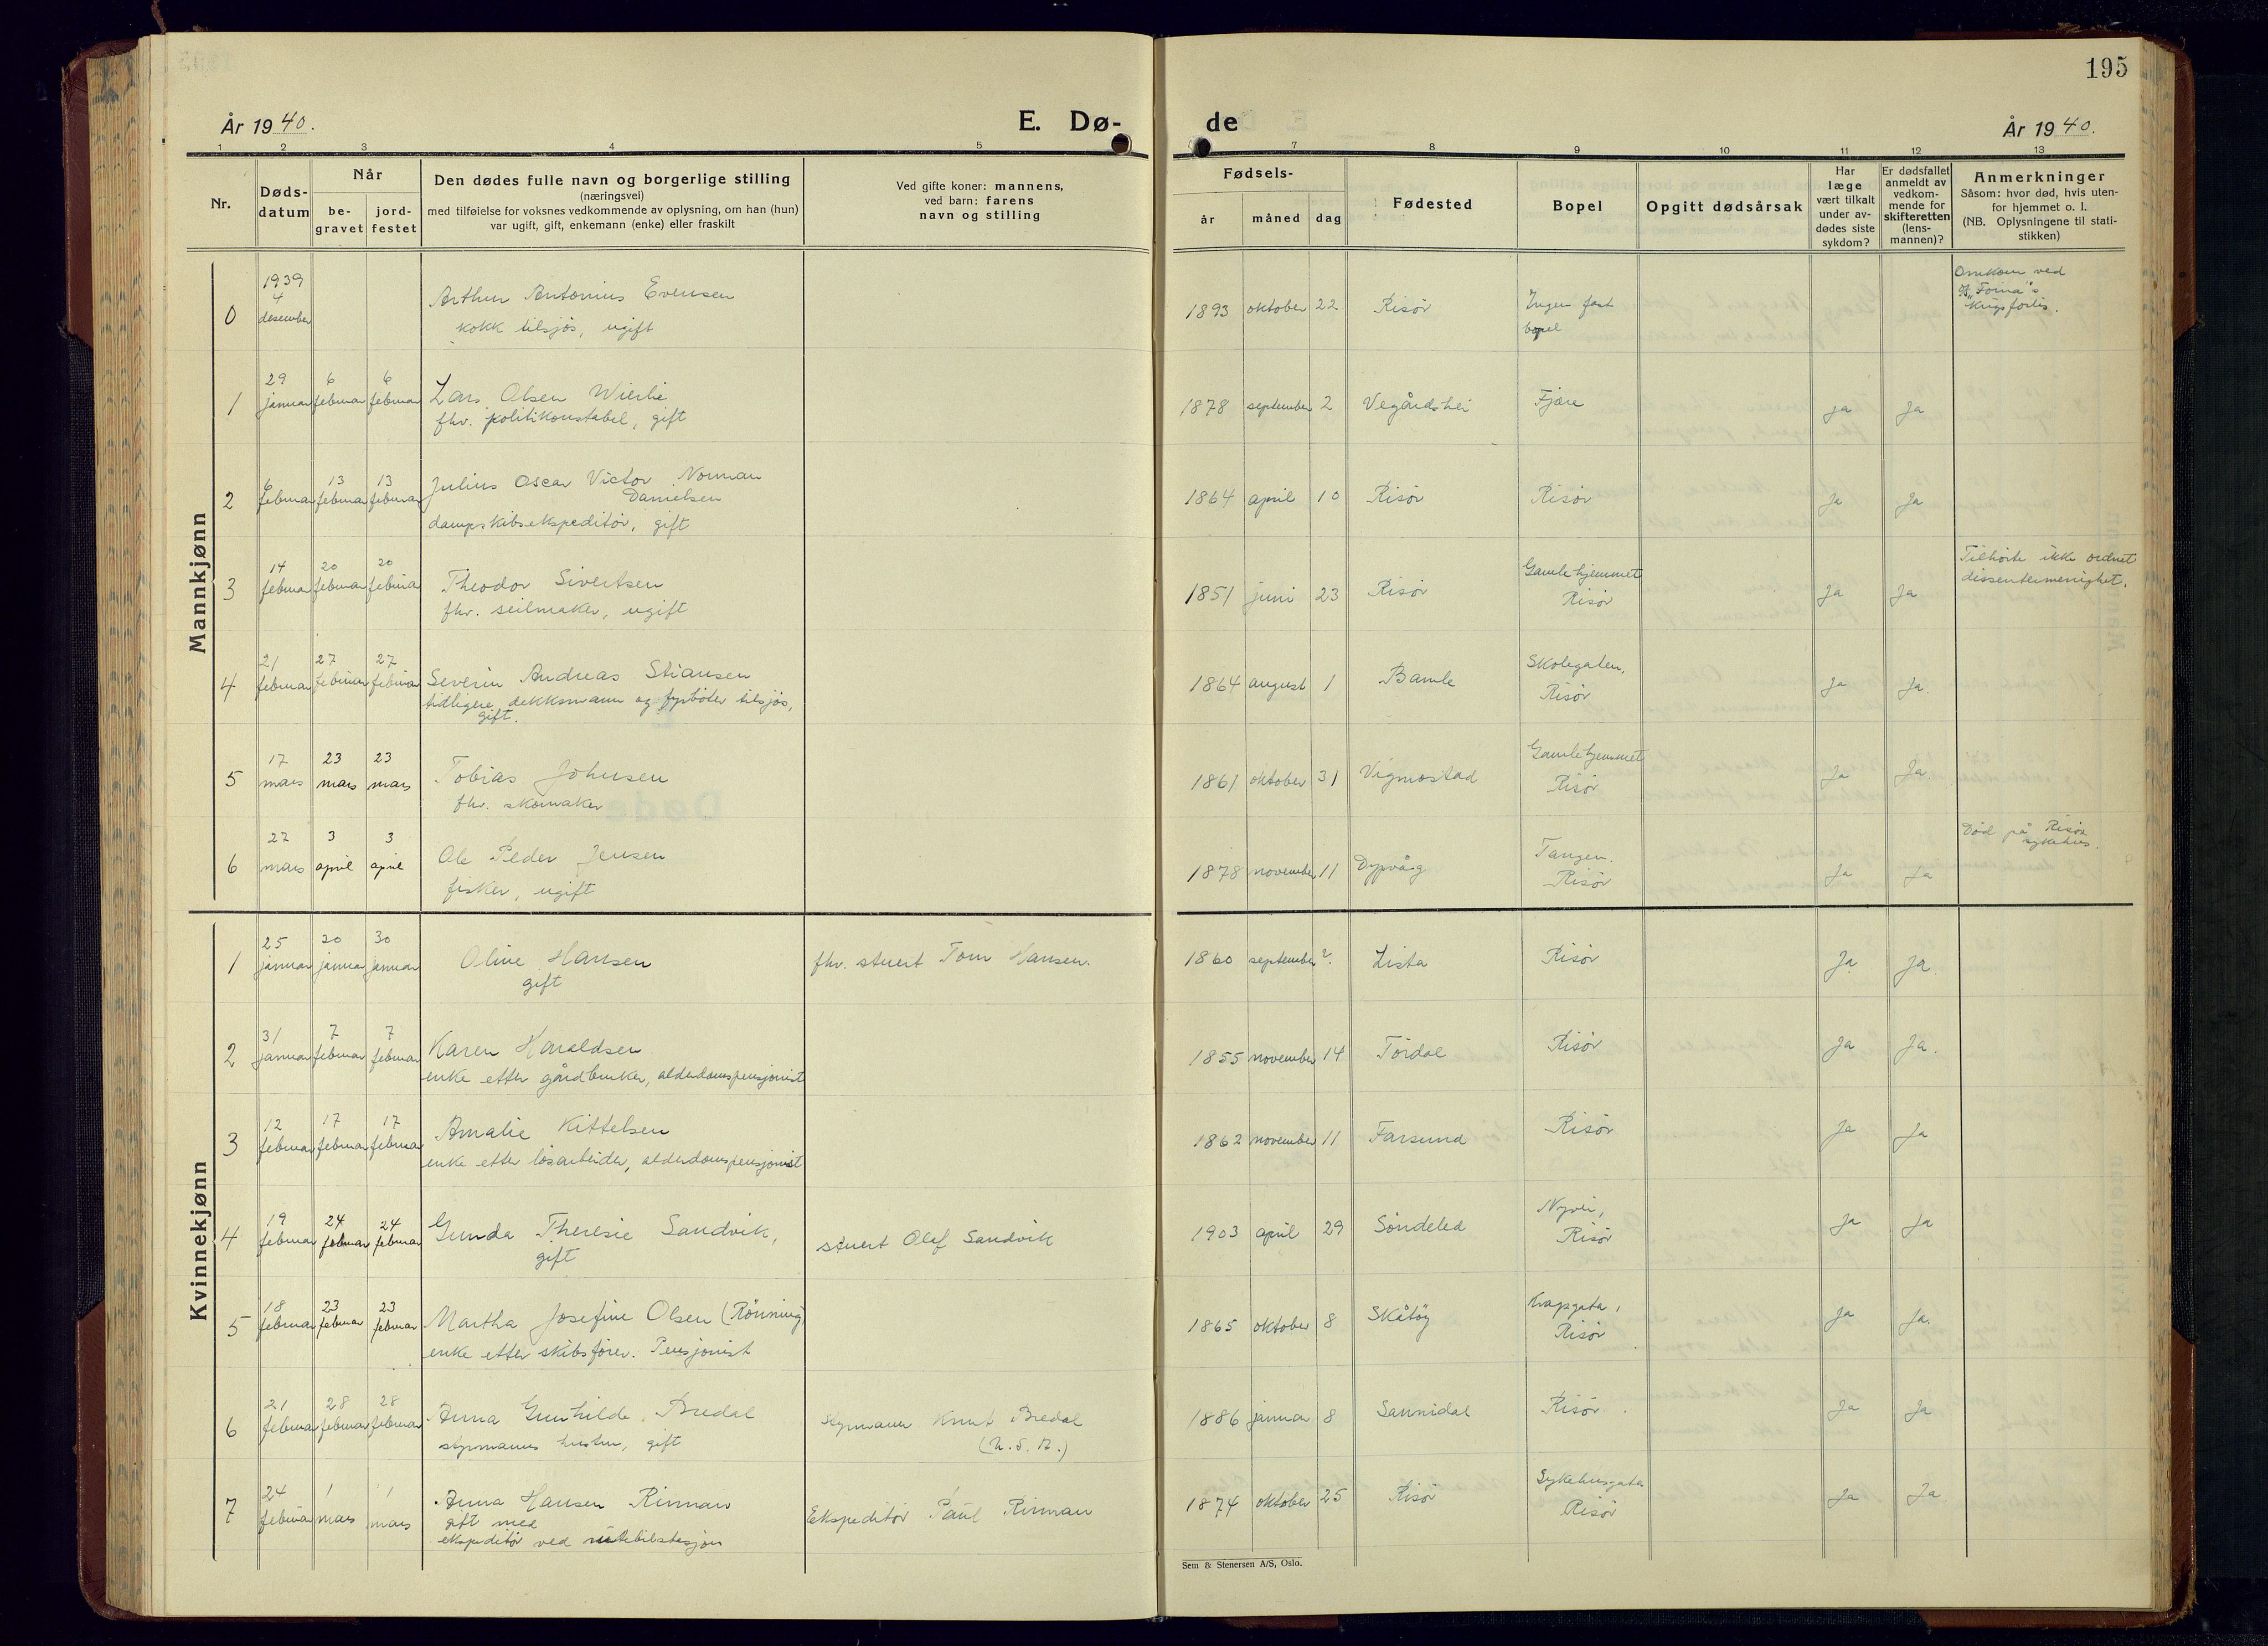 195
År 1940.
E. Dø-
de
År 1940.
1 2 3 4 5 7 8 9 10 11 12 13
Nr.
Døds-
datum
Når
be-
gravet
jord-
festet
Den dødes fulle navn og borgerlige stilling
(næringsvei)
med tilføielse for voksnes vedkommende av oplysning, om han (hun)
var ugift, gift, enkemann (enke) eller fraskilt
Ved gifte koner: mannens,
ved barn: farens
navn og stilling
Fødsels-
år måned dag
Fødested
Bopel
Opgitt dødsårsak
Har
læge
vært tilkalt
under av-
dødes siste
sykdom?
Er dødsfallet
anmeldt av
vedkom-
mende for
skifteretten
(lens-
mannen)?
Anmerkninger
Såsom: hvor død, hvis uten-
for hjemmet o. l.
(NB. Oplysningene til stati-
stikken)
Mannkjønn
0
1939
4
desember
Arthur Antonius Evensen
kokk tilsjøs, ugift
1893 oktober 22 Risör
Ingen fast
bopel
Omkom ved
"Foina"s
krigsforlis.
1
29 6 6
januar februar februar
Lars Olsen Wierlie
fhv. politikonstabel, gift
1878 september 2 Vegårdshei Fjære ja Ja
2
6 13 13
februar februar februar
Julius Oscar Victor Norman
Danielsen
dampskibsekspeditör, gift
1864 april 10 Risör Risör Ja Ja
3
14 20 20
februar februar februar
Theodor Sivertsen
fhv. seilmaker, ugift
1851 juni 23 Risör
Gamlehjemmet
Risör
Ja Ja
Tilhörte ikke ordnet
dissentermenighet.
4
21 27 27
februar februar februar
Severin Andreas Stiansen
tidligere dekksmann og fyrböter tilsjös,
gift.
1864 august 1 Bamle
Skolegaten,
Risör
Ja Ja.
5
17 23 23
mars mars mars
Tobias Johnsen
fhv. skomaker
1861 oktober 31 Vigmostad
Gamlehjemmet
Risör
Ja Ja
6
27 3 3
mars april april
Ole Peder Jensen
fisker, ugift
1878 november 11 Dypvåg
Tangen.
Risör
Ja Ja
Död på Risör
sykehus.
Kvinnekjønn
1
25 30 30
januar januar januar
Oline Hansen
gift
fhv. stuert Tom Hansen.
1860 september 2. Lista Risör Ja Ja.
2
31 7 7
januar februar februar
Karen Haraldsen
enke etter gårdbruker, alderdomspensjonist
1855 november 14 Tördal Risör Ja Ja.
3
12 17 17
februar februar februar
Amalie Kittelsen
enke etter lösarbeider, alderdomspensjonist
1862 november 11 Farsund Risör Ja Ja
4
19 24 24
februar februar februar
Gunda Theresie Sandvik,
gift
stuert Olaf Sandvik
1903 april 29 Söndeled
Nyvei,
Risör
Ja Ja
5
18 23 23
februar februar februar
Martha Josefine Olsen (Rönning)
enke etter skibsförer. Pensjonist
1865 oktober 8 Skåtöy
Kragsgata,
Risör
Ja Ja.
6
21 28 28
februar februar februar
Anna Gunhilde Bredal
styrmanns hustru, gift
styrmann Knut Bredal
(U.S.A.)
1886 januar 8 Sannidal Risör Ja Ja
7
24 1 1
februar mars mars
Anna Hansen Rinman
gift med
ekspeditör ved rutebilstasjon
Ekspeditör Paul Rinman
1874 oktober 25 Risör
Sykehusgata
Risör
Ja Ja
Sem & Stenersen A/S, Oslo.